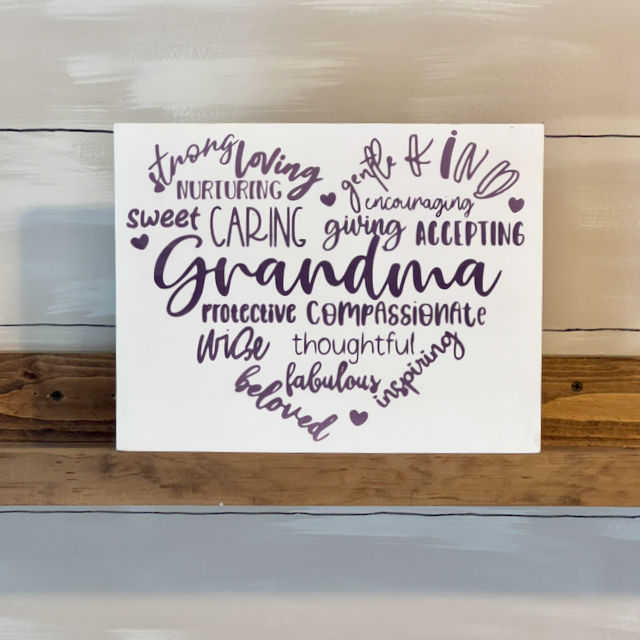 strong loving gentle & KIND
NURTURING encouraging
sweet CARING giving ACCEPTING
Grandma
Protective COMPASSIONATE
WiSe thoughtful inspiring
beloved fabulous